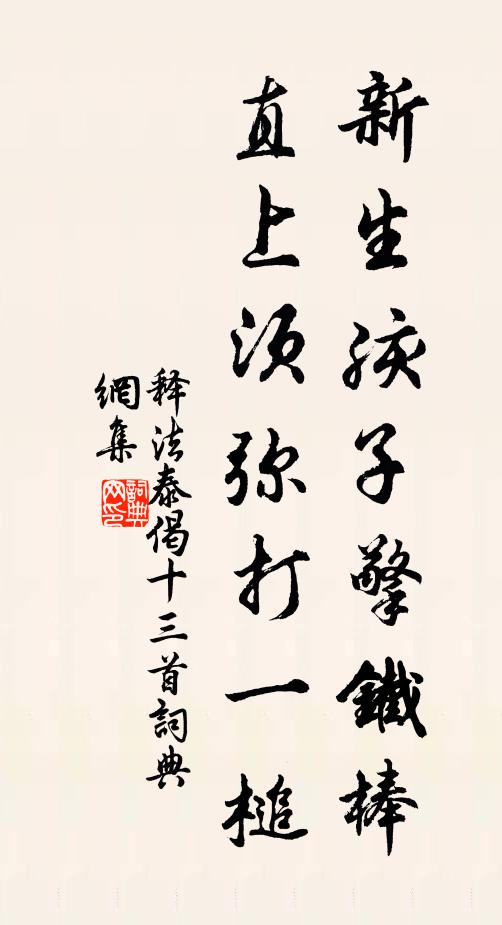 新生孩子擎鐵棒
直上須弥打一槌
释法泰偈十三首詞典
網集
詞典網印